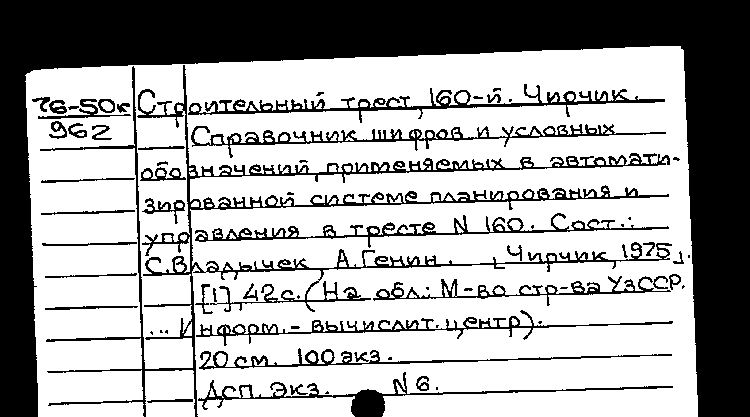 76-50к Строительный трест, 160-й. Чирчик.
962 Справочник шифров и условных
обозначений, применяемых в автомати-
зированной системе планирования и
управления в тресте N 160. Сост.:
С.Владычек, А.Генин. [Чирчик, 1975].
[1], 42 с. (На обл.: М-во стр-ва УзССР.
... Информ.-вычислит. центр).
20 см. 100 экз.
Дсп. Экз. N 6.